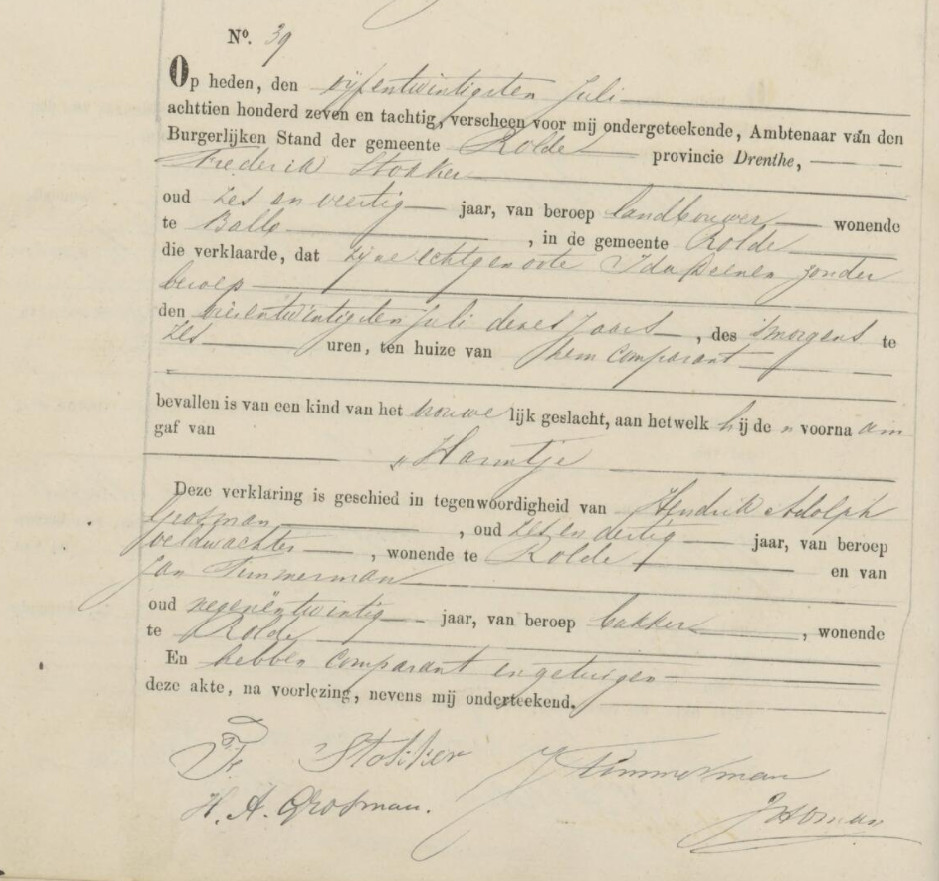 No. 39
Op heden, den vijfentwintigsten Juli
achttien honderd zeven en tachtig, verscheen voor mij ondergeteekende, Ambtenaar van den
Burgerlijken Stand der gemeente Rolde provincie Drenthe,
Frederik Stokker
oud zes en veertig jaar, van beroep landbouwer wonende
te Ballo , in de gemeente Rolde
die verklaarde, dat zijne echtgenoote Ida Deenen zonder
beroep
den vierentwintigsten Juli dezes jaars , des smorgens te
zes uren, ten huize van hem comparant
bevallen is van een kind van het vrouwelijk geslacht, aan hetwelk hij de n voornaam
gaf van
„Harmtje
Deze verklaring is geschied in tegenwoordigheid van Hendrik Adolph
Grosman , oud zes en dertig jaar, van beroep
veldwachter , wonende te Rolde en van
Jan Timmerman
oud negenëntwintig jaar, van beroep bakker , wonende
te Rolde
En hebben comparant en getuigen
deze akte, na voorlezing, nevens mij onderteekend.
Fr. Stokker J Timmerman
H. A. Grosman.
JHoman